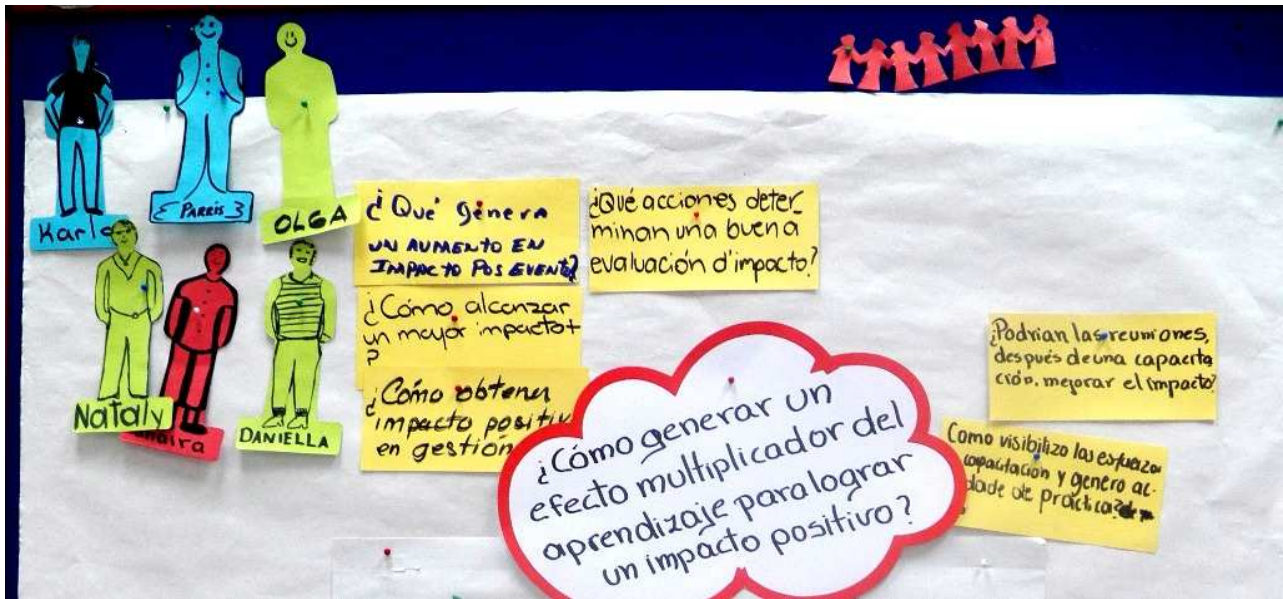 Karla
{ PARRIS }
OLGA
Nataly
DANIELLA
¿Qué genera
UN AUMENTO EN
IMPACTO POS EVENTO?
¿Qué acciones deter_
minan una buena
evaluación d'impacto?
¿Cómo alcanzar
un mayor impacto+
?
¿Cómo obtener
impacto positiv
en gestión
¿Cómo generar un
efecto multiplicador del
aprendizaje para lograr
un impacto positivo?
¿Podrian las reuniones,
después de una capacita
ción, mejorar el impacto?
Como visibilizo los esfuerzo
capacitación y genero ac-
dade de práctica?